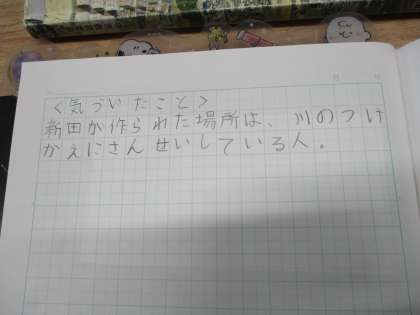 <気づいたこと>
新田が作られた場所は、川のつけ
かえにさんせいしている人。
月 日